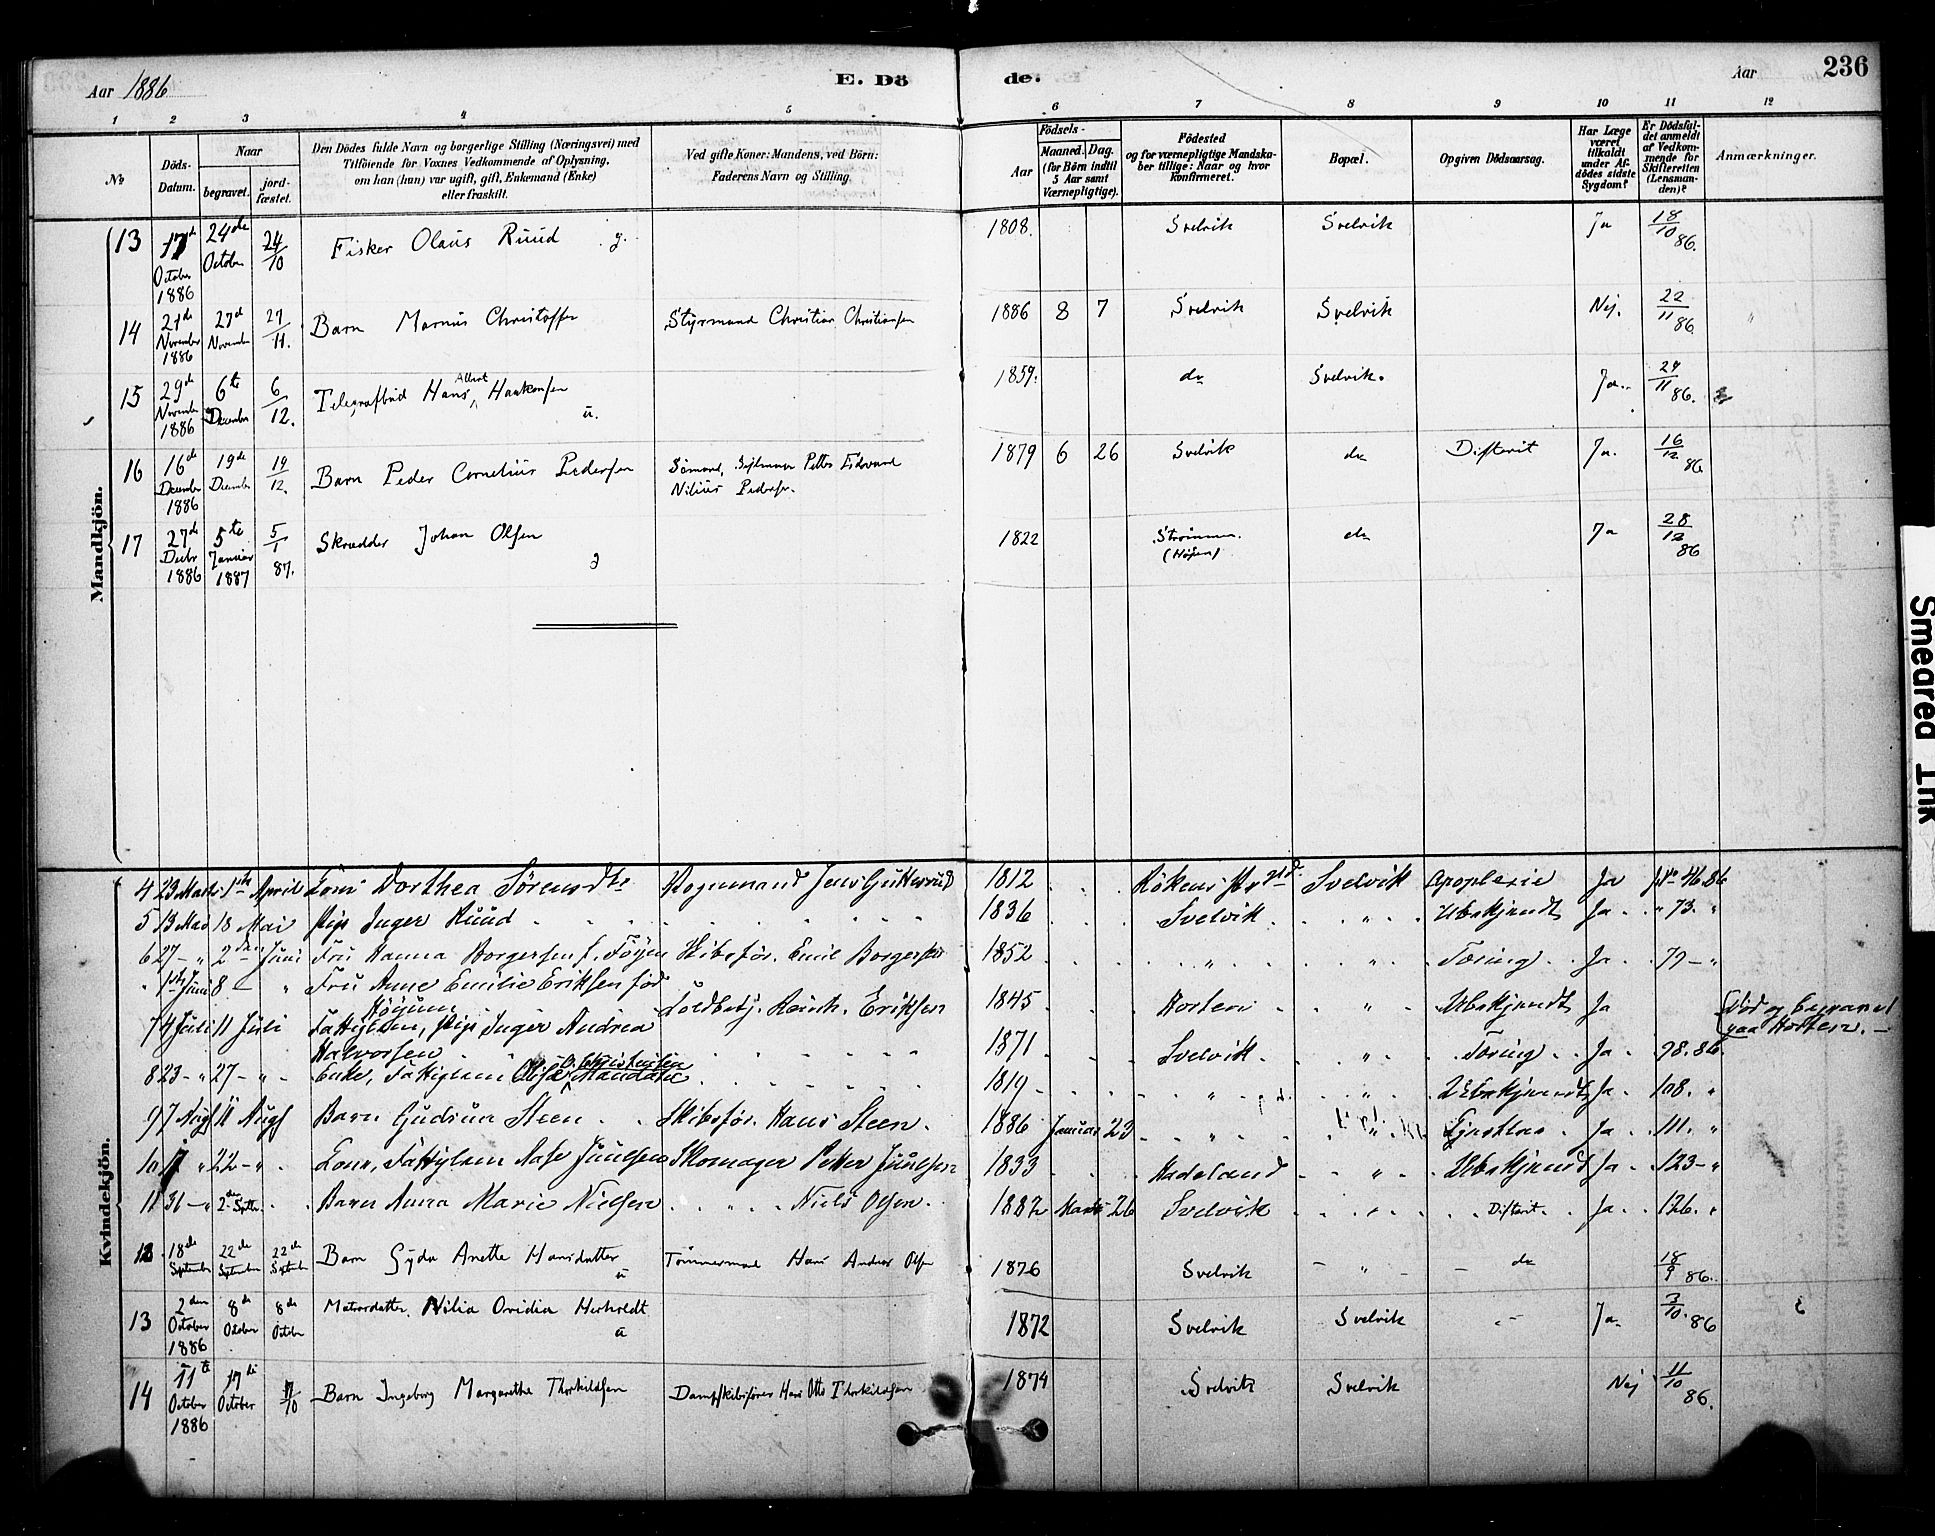 Aar 1886 E. Dö de. Aar 236
1 2 3 4 5 6 7 8 9 10 11 12
No Döds-Datum. Naar begravet. jord-fæstet. Den Dödes fulde Navn og borgerlige Stilling (Næringsvei) med Tilföiende for Voxnes Vedkommende af Oplysning, om han (hun) var ugift, gift, Enkemand (Enke) eller fraskilt. Ved gifte Koner: Mandens, ved Börn: Faderens Navn og Stilling. Födsels- Aar Maaned. Dag. (for Börn indtil 5 Aar samt Værnepligtige). Födested og for værnepligtige Mandskaber tillige: Naar og hvor konfirmeret. Bopæl. Opgiven Dödsaarsag. Har Læge været tilkaldt under Afdödes sidste Sygdom? Er Dödsfaldet anmeldt af Vedkommende for Skifteretten (Lensmanden)? Anmærkninger.
Mandkjön.
13 17de October 1886 24de October 24/10 Fisker Olaus Ruud g. 1808. Svelvik Svelvik Ja 18/10 86.
14 21de November 1886 27d November 27/11. Barn Marius Christoffer Styrmand Christian Christiansen 1886 8 7 Svelvik Svelvik Nej. 22/11 86. "
15 29de November 1886 6te December 6/12. Telegrafbud Hans Albert Haakonsen u. 1859. do Svelvik. Ja. 29/11 86.
16 16de December 1886 19de December 19/12. Barn Peder Cornelius Pedersen Sömand, Petter Edvard
Nilius Pedersen. 1879 6 26 Svelvik do Difterit Ja. 16/12 86
17 27de Decbr 1886 5te Januar 1887 5/1 87. Skrædder Johan Olsen 1822 Strömmen (Höjen) do Ja 28/12 86
Kvindekjön.
4 23 Marts 1ste April Kone Dorthea Sörensdtr Jens 1812 Rökens Svelvik Apoplexie Ja No 46.86
5 13 Mai 18 Mai Pige Inger Ruud 1836 Svelvik " Ubekjendt Ja " 73. "
6 27 - " 2den Juni Fru Hanna Borgersen f. Föyen Skibsför. Emil Borgersen 1852 " " Tæring Ja 79 - "
" 1ste Juni 8 - " Fru Anne Emilie Eriksen föd
Höyum Toldbetj. Henrik Eriksen 1845 Horten " Ubekjendt Ja Död og begravet paa Horten. -
7 4 Juli 11 Juli Fattiglem, Pige Inger Andrea
Halvorsen 1871 Svelvik " Tæring Ja 98. 86
8 23 - " 27 - " Enke, Fattiglem Christensen 1819 " " Ubekjendt Ja 108. "
9 7 Augs 11 Augs Barn Gudrun Steen Skibsför. Hans Steen. 1886 Januar 23 " " Ja 111. "
10 17 " 22 - " Kone, Fattiglem Aase Juulsen Skomager Petter Juulsen 1833 Hadeland " Ubekjendt Ja 123 - "
11 31 - " 2den Septbr. Barn Anna Marie Nielsen Niels Olsen. 1882 Marts 26 Svelvik " Difterit Ja 126. "
12 18de September 22de September 22de September Barn Gyda Anette Hansdatter u Tömmermand Hans Andreas Olsen 1876 Svelvik " do 18/9 86.
13 2den October 1886 8de October 8de October Matrosdatter Nilia Ovidia Herholdt u 1872 Svelvik Svelvik - Ja 3/10. 86
14 11te October 1886 17de October 17/10 Barn Ingeborg Margarethe Thorkildsen Dampskibsförer Hans Otto Thorkildsen 1874 Svelvik Svelvik Nej 11/10 86.
Smeared Ink